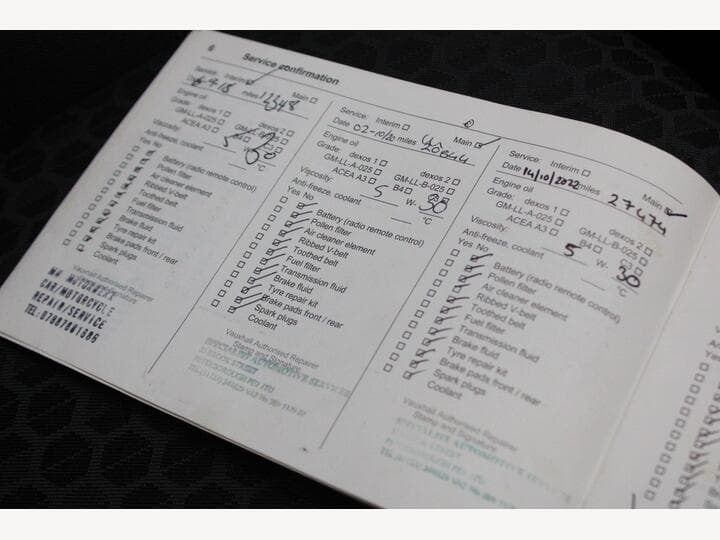 6
Service confirmation
Service: Interim
Main
miles 12348
Engine oil
Grade: dexos 1 dexos 2
GM-LL-A-025 GM-LL-B-025
ACEA A3 B4 C3
Viscosity: 5 W- 30
Anti-freeze, coolant °C
Yes No
Battery (radio remote control)
Pollen filter
Air cleaner element
Ribbed V-belt
Toothed belt
Fuel filter
Transmission fluid
Brake fluid
Tyre repair kit
Brake pads front / rear
Spark plugs
Coolant
Vauxhall Authorised Repairer
Stamp and Signature
CAR/MOTORCYCLE
REPAIR/SERVICE
Service: Interim
Main
Date 02-10/20 miles
Engine oil
Grade: dexos 1 dexos 2
GM-LL-A-025 GM-LL-B-025
ACEA A3 B4 C3
Viscosity: 5 W- 30
Anti-freeze, coolant °C
Yes No
Battery (radio remote control)
Pollen filter
Air cleaner element
Ribbed V-belt
Toothed belt
Fuel filter
Transmission fluid
Brake fluid
Tyre repair kit
Brake pads front / rear
Spark plugs
Coolant
Vauxhall Authorised Repairer
Stamp and Signature
SPECIALIST AUTOMOTIVE SERVICES
Service: Interim
Main
Date 14/10/2022 miles 27474
Engine oil
Grade: dexos 1 dexos 2
GM-LL-A-025 GM-LL-B-025
ACEA A3 B4 C3
Viscosity: 5 W- 30
Anti-freeze, coolant °C
Yes No
Battery (radio remote control)
Pollen filter
Air cleaner element
Ribbed V-belt
Toothed belt
Fuel filter
Transmission fluid
Brake fluid
Tyre repair kit
Brake pads front / rear
Spark plugs
Coolant
Vauxhall Authorised Repairer
Stamp and Signature
SPECIALIST AUTOMOTIVE